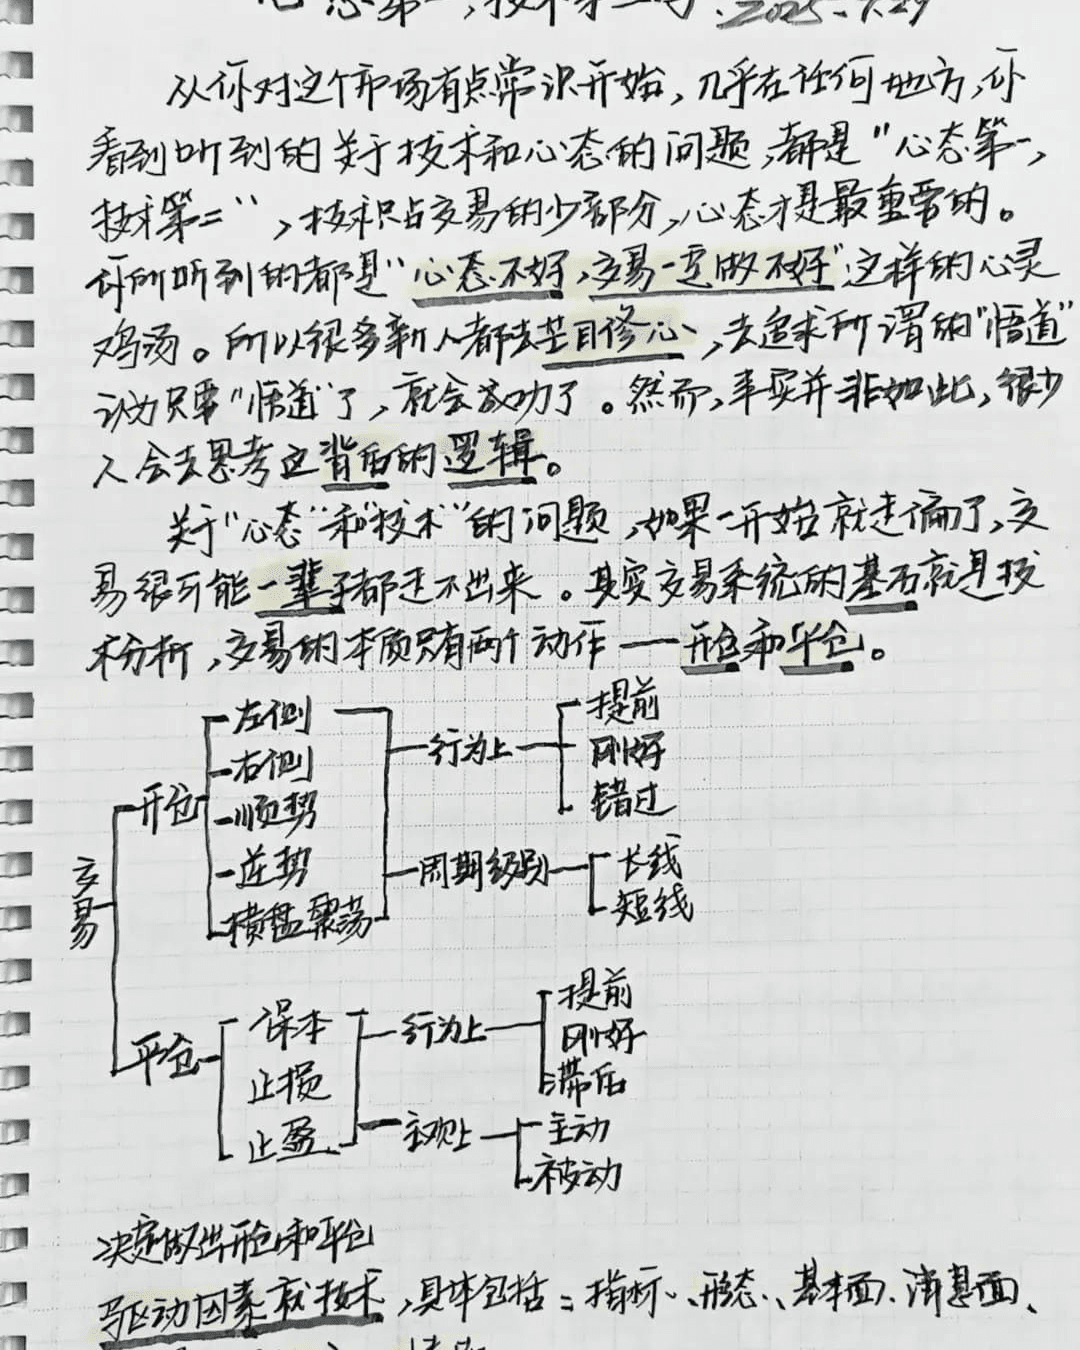 心态第一,技术第二吗. 2025.1.29
从你对这个市场有点常识开始,几乎在任何地方,你
看到听到的关于技术和心态的问题,都是"心态第一,
技术第二",技术只占交易的少部分,心态才是最重要的。
你所听到的都是"心态不好,交易一定做不好"这样的心灵
鸡汤。所以很多新人都去盲目修心,去追求所谓的"悟道"
认为只要"悟道"了,就会成功了。然而,事实并非如此,很少
人会去思考这背后的逻辑。
关于"心态"和"技术"的问题,如果一开始就走偏了,交
易很可能一辈子都走不出来。其实交易系统的基石就是技
术分析,交易的本质只有两个动作——开仓和平仓。
交易
开仓
左侧
右侧
顺势
逆势
横盘震荡
行为上
提前
刚好
错过
周期级别
长线
短线
平仓
保本
止损
止盈
行为上
提前
刚好
滞后
主观上
主动
被动
决定做出开仓和平仓
驱动因素就技术,具体包括:指标、形态、基本面、消息面、